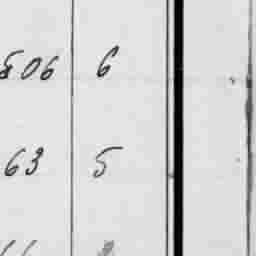 506 6
63 5